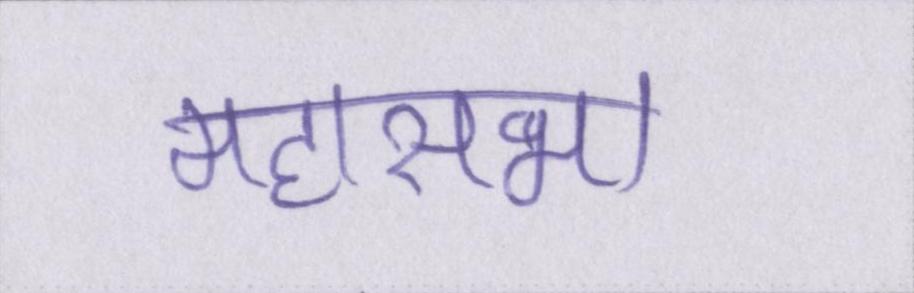 महासभा